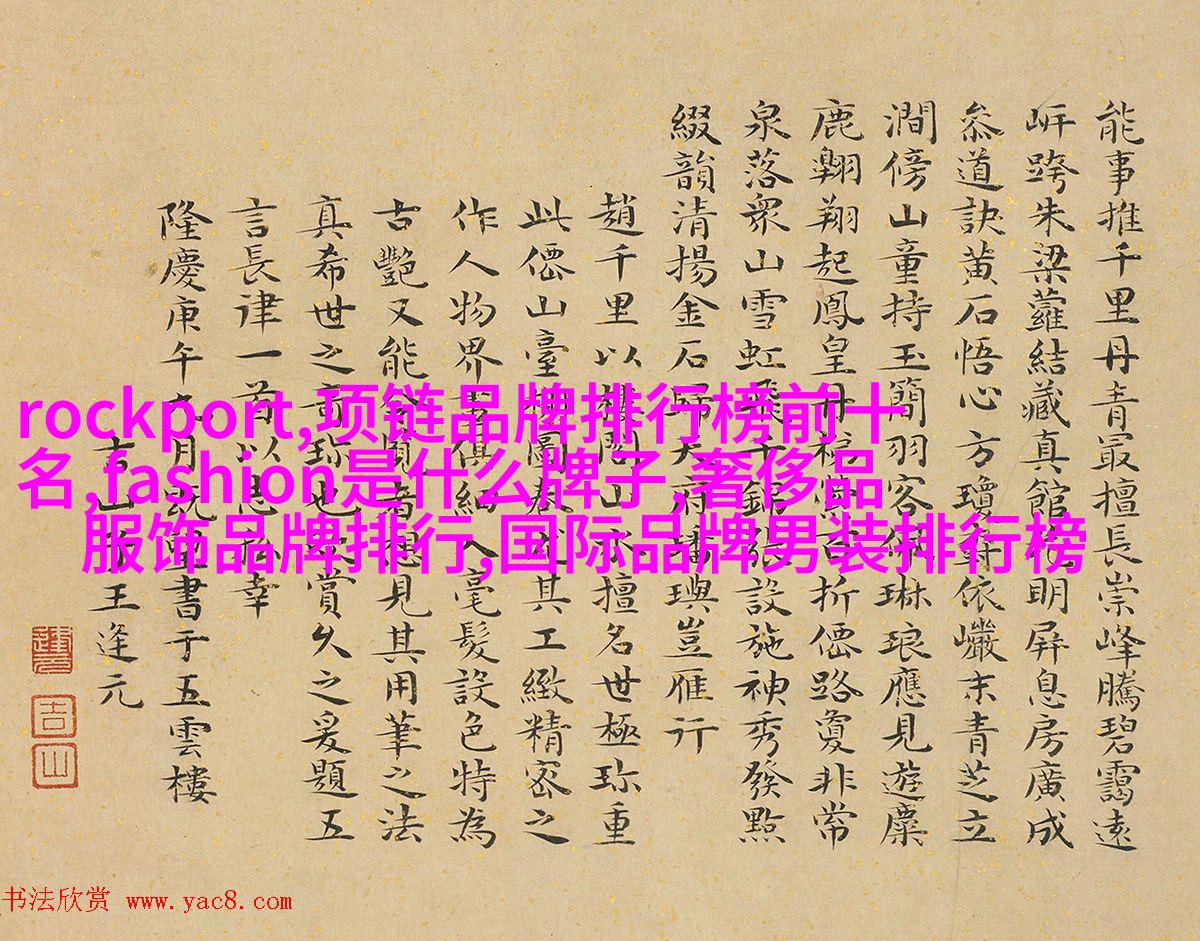 能事推千里丹青冣擅長崇峰騰碧靄遠
岍跨朱梁蘿結藏真館明屏息房廣成
叅道訣黄石悟心方瓊依巘末青芝立
澗傍山童持玉簡羽客琳琅應見遊麋
鹿翱翔起鳳皇丹折僊路敻非常
泉落衆山雪虹飛千張設施神秀發點
綴韻清揚金石歸天府璠璵豈雁行
趙千里以閣山水擅名世極珎重
此僊山臺閣圖其工緻精密之
作人物界畫俱細入毫髮設色特為
古艷又能者想見其用筆之法
真希世之奇珎也賞久之爰題五
言長律一首以幸
隆慶庚午九月既書于五雲樓
吉山王逢元
吉山
rockport,项链品牌排行榜前十
名,fashion是什么牌子,奢侈品
服饰品牌排行,国际品牌男装排行榜
书法欣赏 www.yac8.com